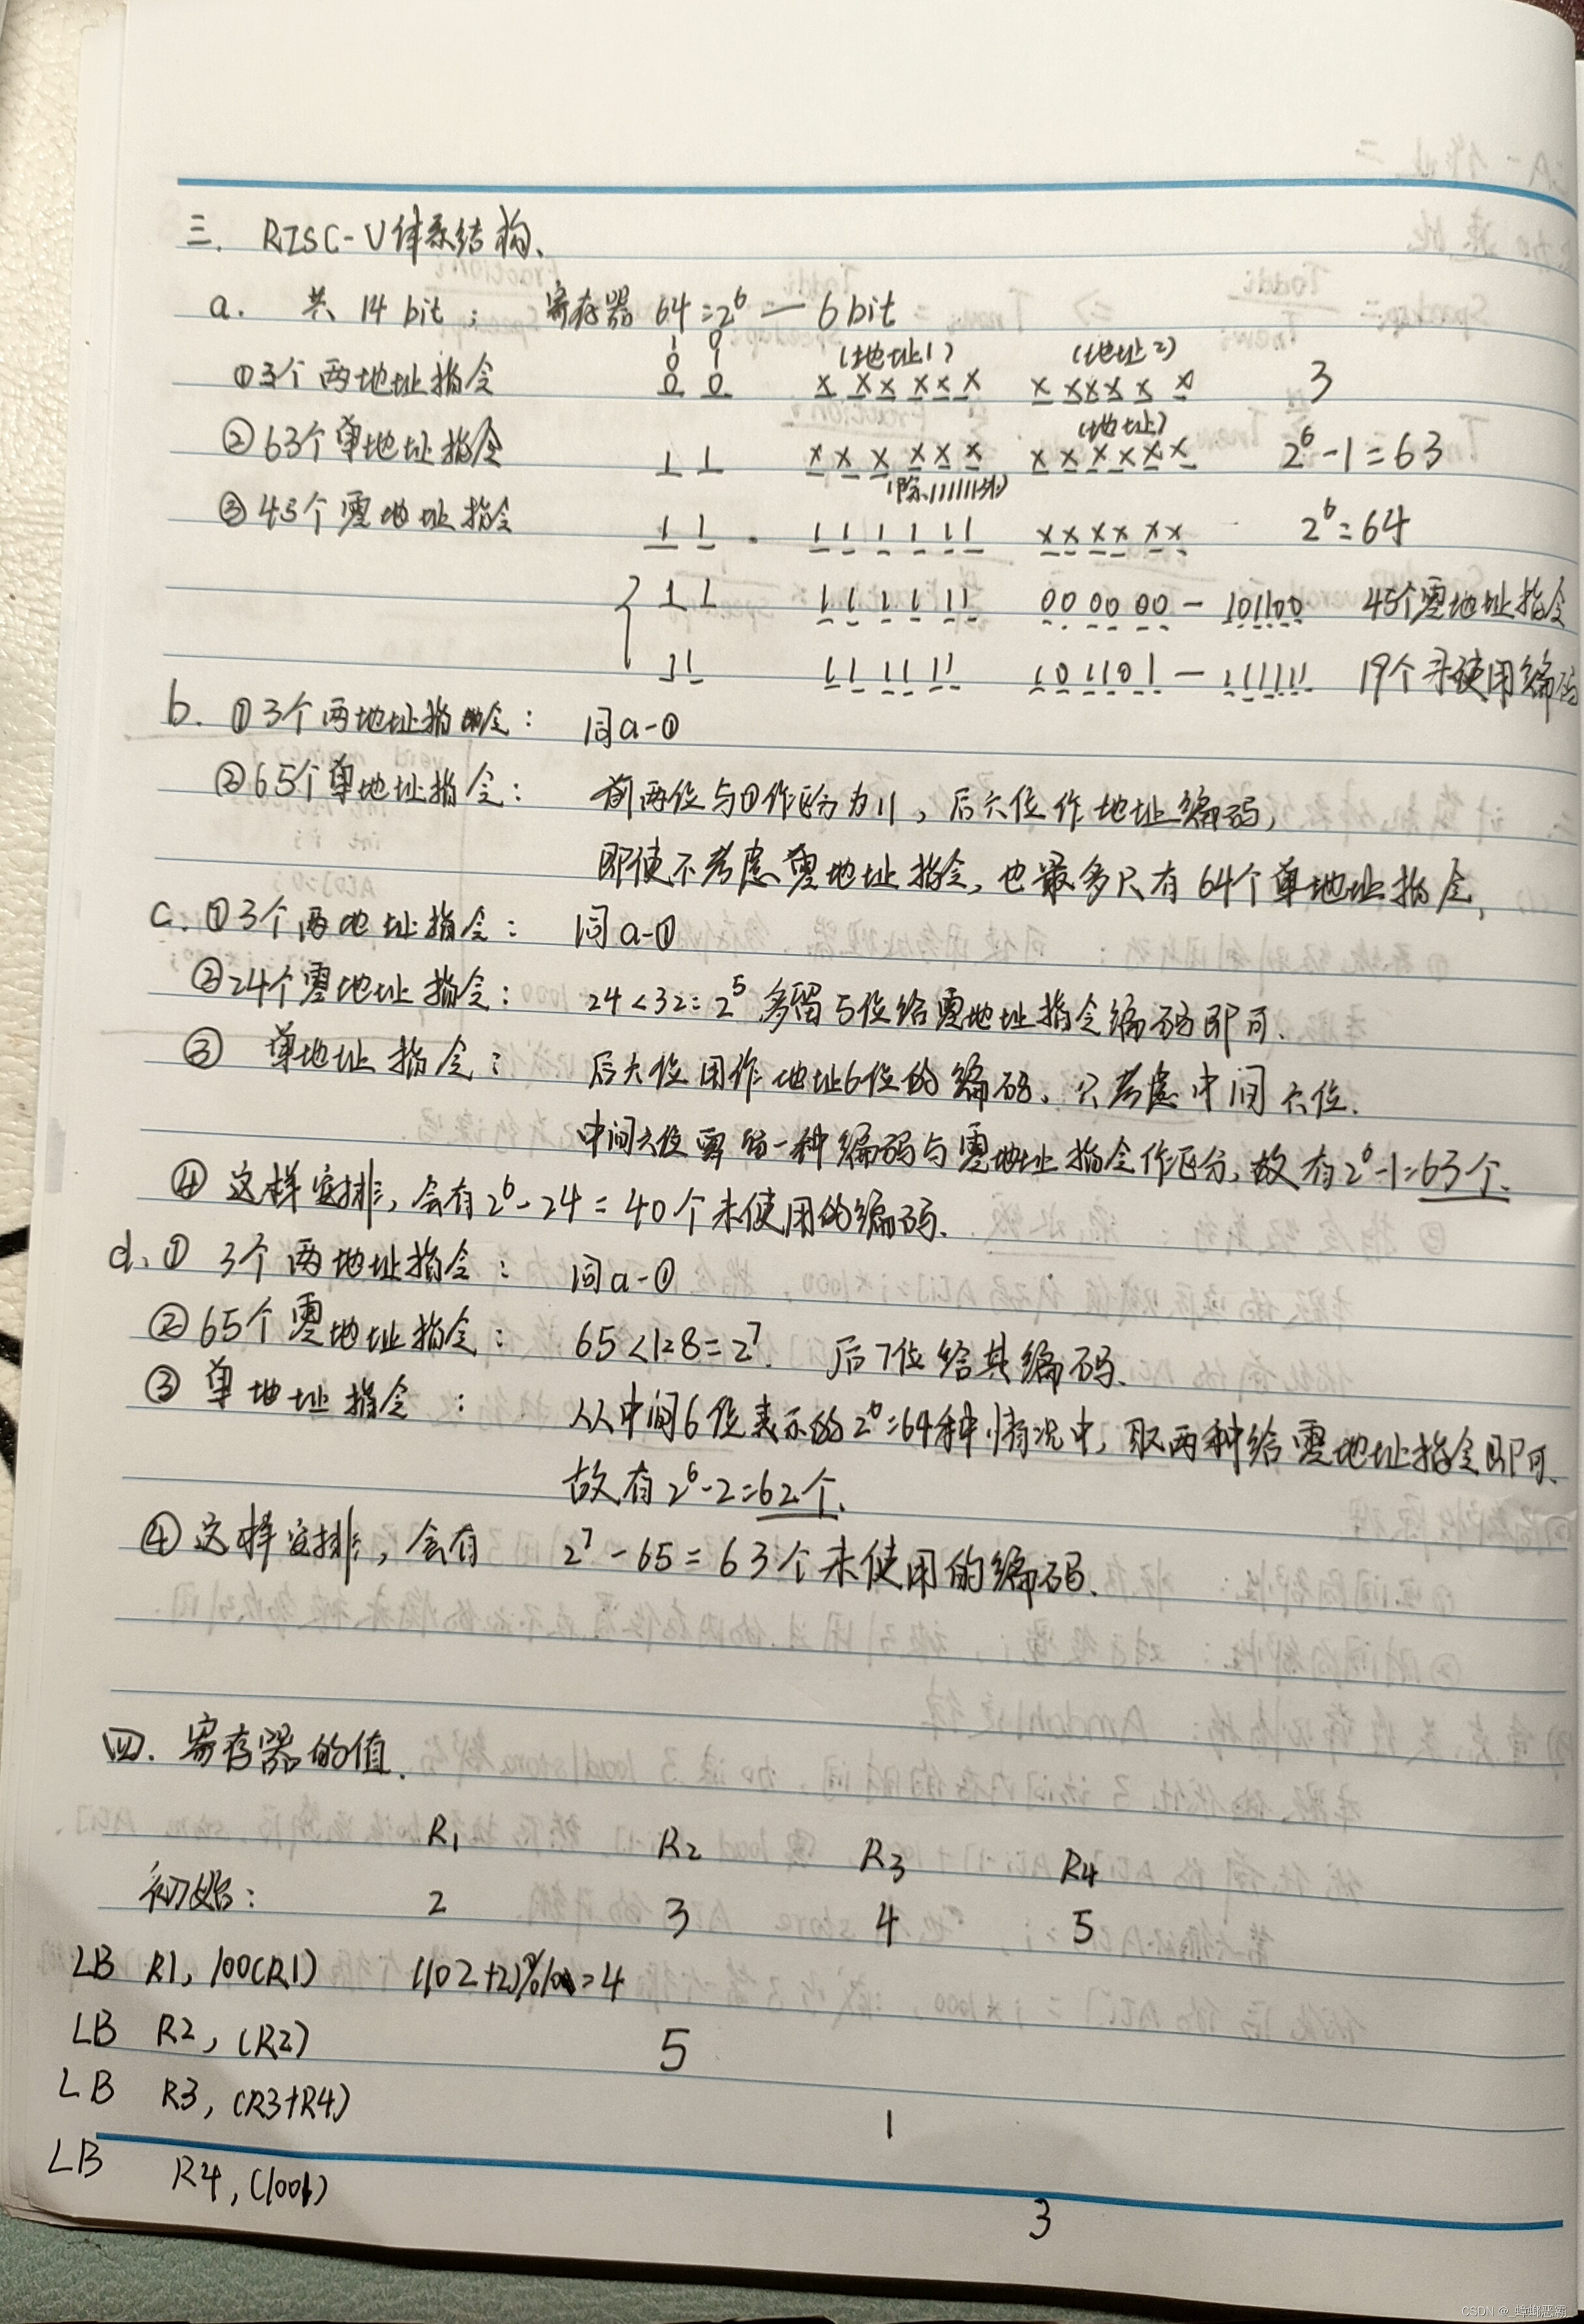 三. RISC-V体系结构、
a. 共 14 bit ; 寄存器 64=2^6 — 6bit
1 0
0 1 (地址1) (地址2)
①3个两地址指令 0 0 x x x x x x x x x x x x 3
(地址)
②63个单地址指令 1 1 x x x x x x x x x x x x 2^6-1=63
(除111111外)
③45个零地址指令 1 1 . 1 1 1 1 1 1 x x x x x x 2^6=64
{ 1 1 1 1 1 1 1 1 00 00 00 — 101100 45个零地址指令
11 11 11 11 101101 — 111111 19个未使用编码
b. ①3个两地址指令: 同a-①
②65个单地址指令: 前两位与①作区分为11, 后六位作地址编码,
即使不考虑零地址指令, 也最多只有64个单地址指令,
c. ①3个两地址指令: 同a-①
②24个零地址指令: 24<32=2^5 多留5位给零地址指令编码即可.
③ 单地址指令: 后六位用作地址6位的编码、只考虑中间六位.
中间六位需留一种编码与零地址指令作区分, 故有2^6-1=63个.
④ 这样安排, 会有2^6-24=40个未使用的编码.
d. ① 3个两地址指令: 同a-①
②65个零地址指令: 65<128=2^7. 后7位给其编码.
③ 单地址指令: 从中间6位表示的2^6=64种情况中, 取两种给零地址指令即可.
故有2^6-2=62个.
④这样安排, 会有 2^7-65=63个未使用的编码.
四. 寄存器的值.
R1 R2 R3 R4
初始: 2 3 4 5
LB R1, 100(R1) (102+2)%100=4
LB R2, (R2) 5
LB R3, (R3+R4) 1
LB R4, (1001) 3
CSDN @_蟑螂恶霸